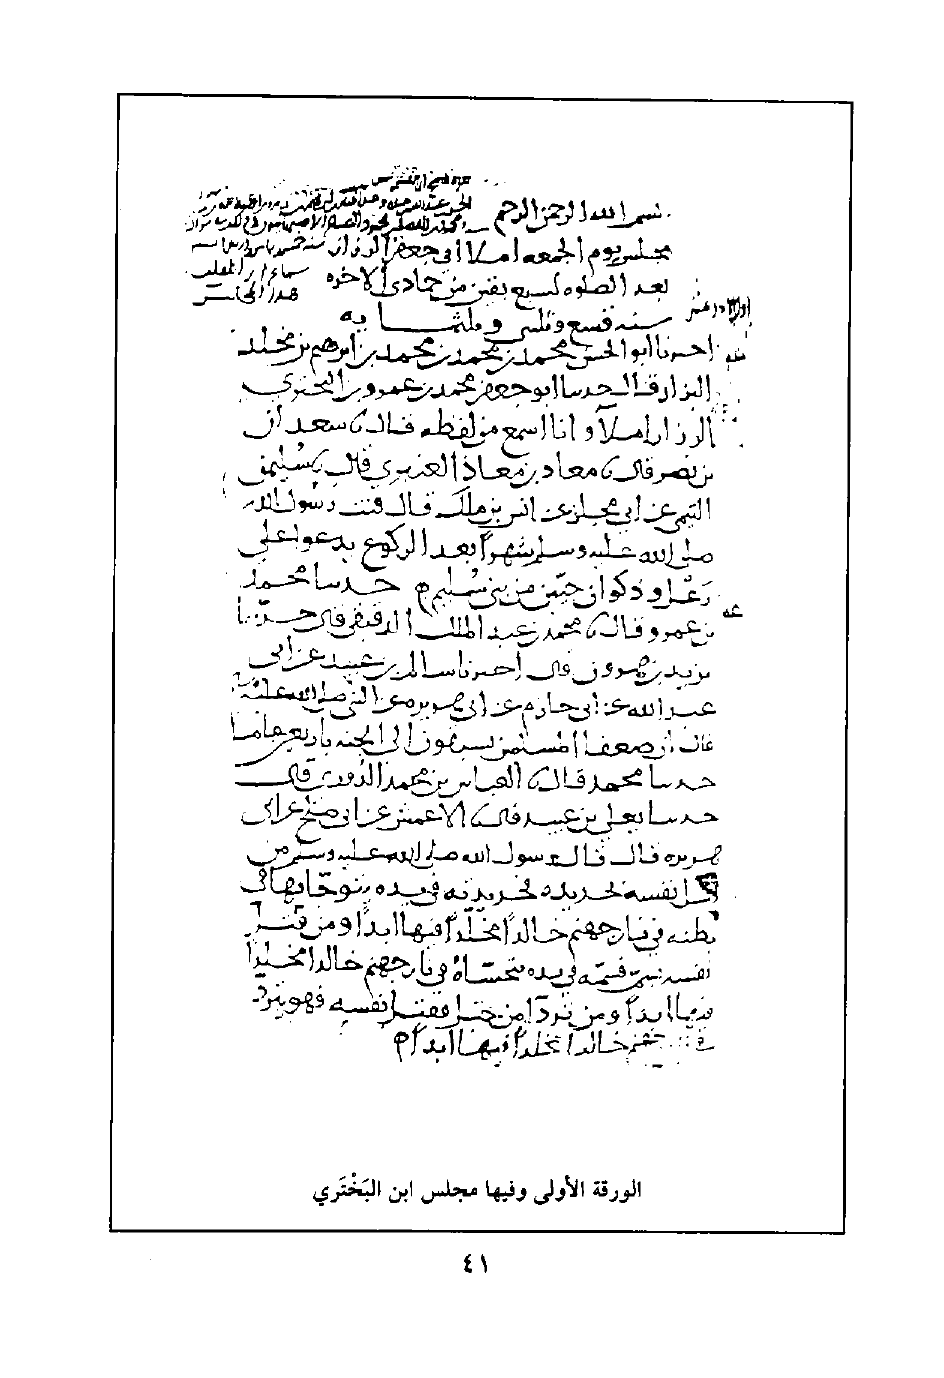 بسم الله الرحمن الرحيم
مجلس يوم الجمعه املا ابي جعفر الرزاز
بعد الصلوه لسبع بقين من جمادى الاخره
سنه تسع وثلثين وثلثمايه
اخبرنا ابو الحسن محمد بن محمد بن محمد بن ابرهيم بن مخلد
البزاز قال حدثنا ابو جعفر محمد بن عمرو بن البختري
الرزاز املاً وانا اسمع من لفظه قال نا سعدان
بن نصر قال نا معاذ بن معاذ العنبري قال نا سُليمن
التيمي عن ابي مجلز عن انس بن ملك قال قنت رسول الله
صلى الله عليه وسلم شهراً بعد الركوع يدعوا على
رَعْل وذكوان حيّين من بني سُليم حدثنا محمد
بن عمرو قال نا محمد بن عبد الملك الدقيقي قال حدّثنا
يزيد بن هرون قال اخبرنا سالم بن عبيد عن ابي
عبد الله عن ابي حازم عن ابي هريره عن النبي صلى الله عليه
قال ان ضعفا المسلمين يسبقون الى الجنه باربعين عاما
حدثنا محمد قال نا العباس بن محمد الدُوري قال
حدثنا يعلى بن عبيد قال نا الاعمش عن ابي صلح عن ابي
هريره قال قال رسول الله صلى الله عليه وسلم من
قتل نفسه بحديده فحديدته في يده يتوجّا بها في
بطنه في نار جهنم خالداً مخلّداً فيها ابداً ومن قتل
نفسه بسمّ فسمّه في يده يتحسّاهُ في نار جهنم خالدا مخلداً
فيها ابداً ومن تردّا من جبل فقتل نفسه فهو يتردّ
في جهنم خالداً مخلداً فيها ابداً
الورقة الأولى وفيها مجلس ابن البَخْتَري
٤١